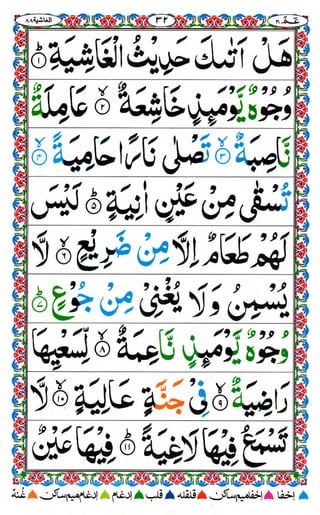 عـمّ ٣٠ ٣٢ الغاشية ٨٨
هَلْ اَتٰىكَ حَدِيْثُ الْغَاشِيَةِ ۝١
وُجُوْهٌ يَّوْمَئِذٍ خَاشِعَةٌ ۝٢ عَامِلَةٌ
نَّاصِبَةٌ ۝٣ تَصْلٰى نَارًا حَامِيَةً ۝٤
تُسْقٰى مِنْ عَيْنٍ اٰنِيَةٍ ۝٥ لَيْسَ
لَهُمْ طَعَامٌ اِلَّا مِنْ ضَرِيْعٍ ۝٦ لَّا
يُسْمِنُ وَلَا يُغْنِيْ مِنْ جُوْعٍ ۝٧
وُجُوْهٌ يَّوْمَئِذٍ نَّاعِمَةٌ ۝٨ لِّسَعْيِهَا
رَاضِيَةٌ ۝٩ فِيْ جَنَّةٍ عَالِيَةٍ ۝١٠ لَّا
تَسْمَعُ فِيْهَا لَاغِيَةً ۝١١ فِيْهَا عَيْنٌ
اخفا اخفامیم ساکن قلقله قلب ادغام ادغام میم ساکن غنه